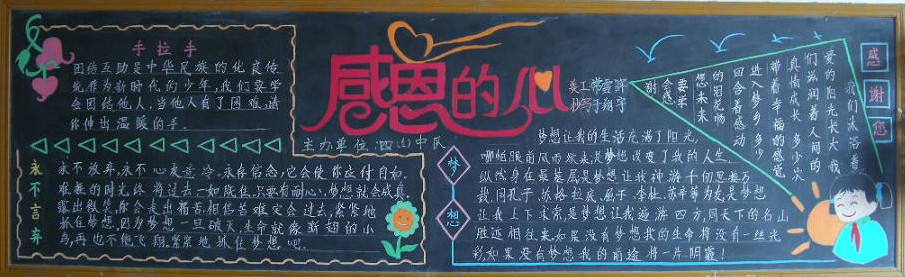 手拉手
团结互助是中华民族的优良传
统,作为新时代的少年,我们要学
会团结他人,当他人有了困难,请
你伸出温暖的手。
感恩的心
美工
抄写
主办单位
中队
永不言弃
永不放弃,永不心灰意冷。永存信念,它会使你应付自如。
难熬的时光终将过去一如既往,只要有耐心,梦想就会成真。
露出微笑,你会走出痛苦,相信苦难定会过去,紧紧地
抓住梦想,因为梦想一旦破灭,生命就像断翅的小
鸟,再也不能飞翔,紧紧地抓住梦想吧。
我们沐浴着
爱的阳光长大 我
们滋润着人间的
真情成长 多少次
带着幸福的感觉
进入梦乡 多少
回含着感动
的阳花畅
想未来
要学
会感
谢
感谢您
梦想
梦想让我的生活充满了阳光,
哪怕眼前风雨欲来,是梦想改变了我的人生,
纵然身在最基层是梦想让我神游千仞思接万
载,同孔子,苏格拉底,屈子,李杜,苏辛等为友,是梦想
让我上下求索,是梦想让我遨游四方,同天下的名山
胜迹相往来,如果没有梦想我的生命将没有一丝光
彩,如果没有梦想我的前途将一片阴霾!